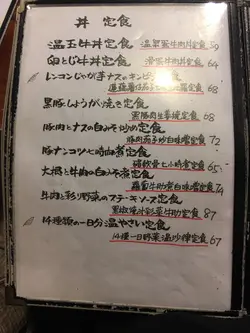 丼 定食
温玉牛丼定食 温泉蛋牛肉丼定食 59
卵とじ牛丼定食 滑蛋牛肉丼定食 64
レンコンじゃが芋ナスのキンピラ定食
蓮藕薯仔茄子 定食 68
黒豚しょうが焼き定食
黑豚肉生薑燒定食 68
豚肉とナスの白みそ炒め定食
豚肉茄子炒白味噌定食 72
豚ナンコツ七時間煮定食
豬軟骨七小時煮定食 65
大根と牛肉の白みそ煮定食
蘿蔔牛肋煮白味噌定食 74
牛肉と彩り野菜のステーキソース定食
黑椒燒汁彩菜牛肋定食 87
14種類の一日分温やさい定食
14種一日野菜溫沙律定食 67